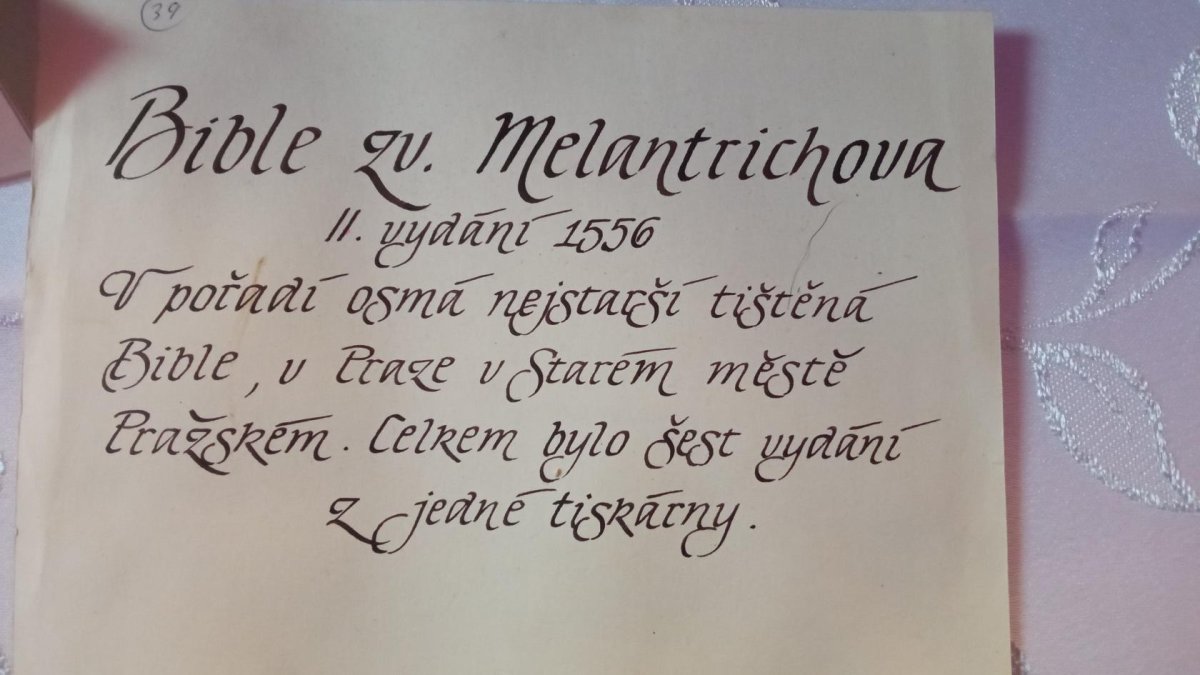 39
Bible zv. Melantrichova
II. vydání 1556
V pořadí osmá nejstarší tištěná
Bible, v Praze v Starém městě
Pražském. Celkem bylo šest vydání
z jedné tiskárny.